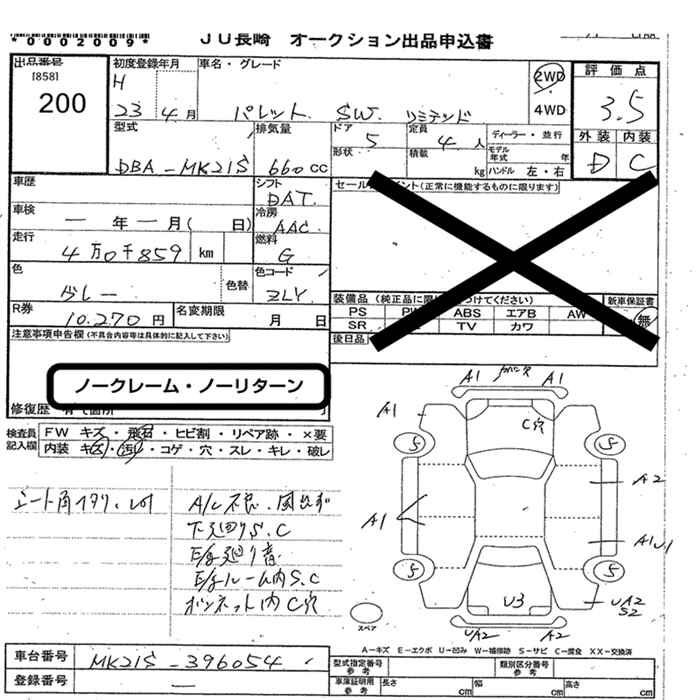 *0002009*
JU長崎 オークション出品申込書
出品番号
[858]
200
初度登録年月
H
23年4月
車名・グレード
パレット SW リミテッド
2WD
4WD
評価点
3.5
外装 内装
D C
型式
DBA-MK21S
排気量
660cc
ドア
5
形状
定員
4人
積載
kg
ディーラー・並行
モデル年式 年
ハンドル 左・右
車歴
シフト
DAT
車検
一年一月( 日)
冷房
AAC
走行
4万0千859 km
燃料
G
色
グレー
色替
色コード
ZLY
R券
10.270円
名変期限
月 日
注意事項申告欄(不具合内容等は具体的に記入して下さい)
ノークレーム・ノーリターン
修復歴
装備品
新車保証書
PS ABS エアB AW 無
SR TV カワ
後日品
検査員記入欄
FW キズ・飛石・ヒビ割・リペア跡・×要
内装 キズ・汚れ・コゲ・穴・スレ・キレ・破レ
A/C不良.
下廻りS.C
E/g廻り音
E/gルーム内S.C
ボンネット内C穴
A1 A1
A1
C穴
5 5
A2
A1
A1 U1
5 5
U3
UA2
S2
UA2 A2
スペア
A-キズ E-エクボ U-凹み W-補修跡 S-サビ C-腐食 XX-交換済
車台番号
MK21S-396054
登録番号
一
型式指定番号
参考
類別区分番号
参考
車庫証明用
参考
長さ cm 幅 cm 高さ cm